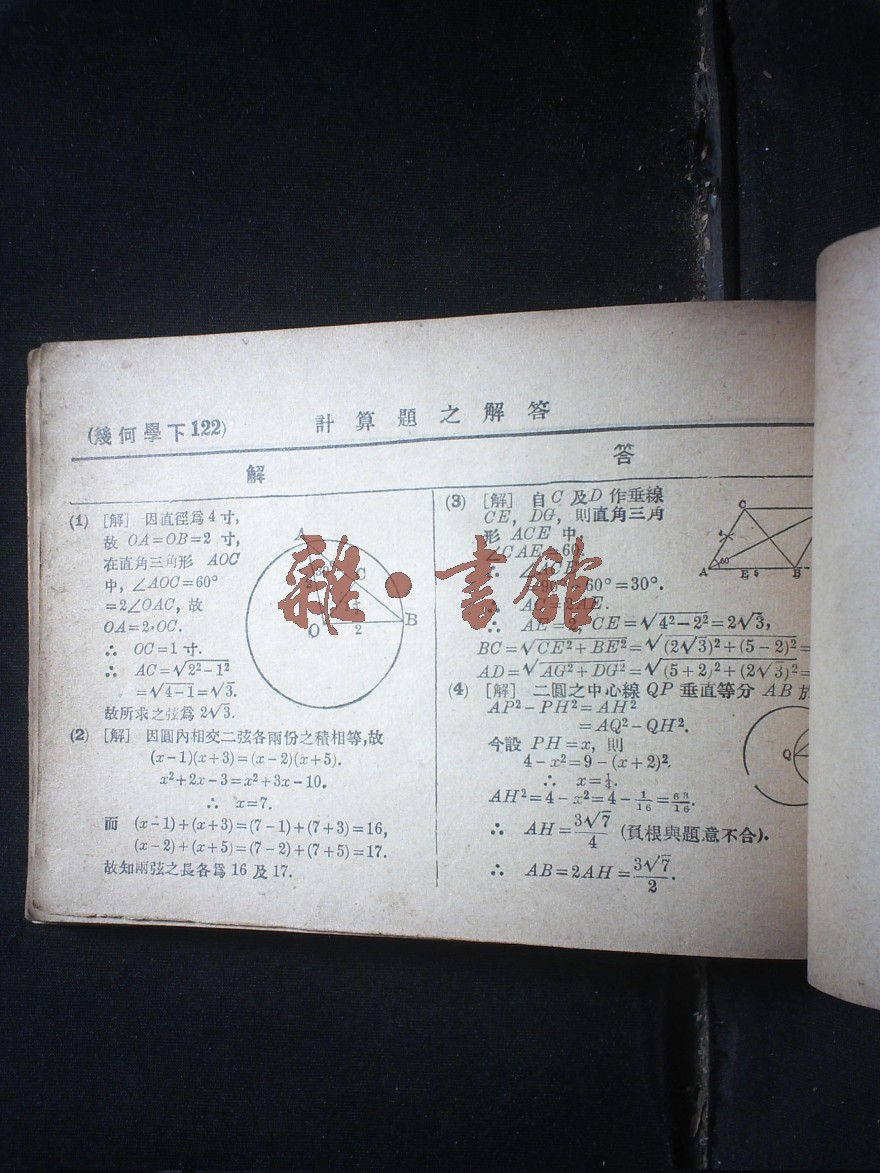 (幾何學下122)
計算題之解答
解
答
(1) [解] 因直徑爲4寸,
故 OA=OB=2 寸,
在直角三角形 AOC
中, ∠AOC=60°
=2∠OAC, 故
OA=2·OC.
∴ OC=1寸.
∴ AC=√2²-1²
=√4-1=√3.
故所求之弦爲 2√3.
A
C
O
B
2
(2) [解] 因圓內相交二弦各兩份之積相等,故
(x-1)(x+3)=(x-2)(x+5).
x²+2x-3=x²+3x-10.
∴ x=7.
而 (x-1)+(x+3)=(7-1)+(7+3)=16,
(x-2)+(x+5)=(7-2)+(7+5)=17.
故知兩弦之長各爲 16 及 17.
(3) [解] 自C及D作垂線
CE, DG, 則直角三角
形 ACE 中
∠CAE=60
∴ ∠ACE
=90°-60°=30°.
∴ AC=2AE.
∴ AE=2, CE=√4²-2²=2√3,
BC=√CE²+BE²=√(2√3)²+(5-2)²=
AD=√AG²+DG²=√(5+2)²+(2√3)²=
C
4
60
A
E
5
B
(4) [解] 二圓之中心線 QP 垂直等分 AB 於
AP²-PH²=AH²
=AQ²-QH².
今設 PH=x, 則
4-x²=9-(x+2)².
∴ x=1/4.
AH²=4-x²=4-1/16=63/16.
∴ AH=3√7/4 (負根與題意不合).
∴ AB=2AH=3√7/2.
Q
雜·書館